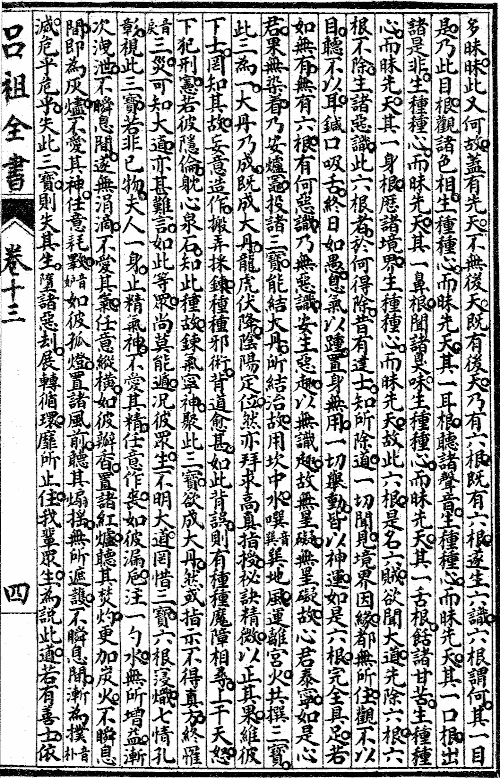 多昧昧此又何故蓋有先天不無後天既有後天乃有六根既有六根遂生六識六根謂何其一目
是乃此目根觀諸色相生種種心而昧先天其一耳根聽諸聲音生種種心而昧先天其一口根出
諸是非生種種心而昧先天其一鼻根聞諸臭味生種種心而昧先天其一舌根餂諸甘苦生種種
心而昧先天其一身根歷諸境界生種種心而昧先天故此六根是名六賊欲聞大道先除六根六
根不除生諸惡識此六根者於何得除昔有達士知所除道一切聞見境界因緣都無所住觀不以
目聽不以耳鍼口吸舌終日如愚息氣以踵置身無用一切舉動皆以神運如是六根完全具足若
如無有無有六根有何惡識乃無惡識安生惡趣以無識趣故無罣礙無罣礙故心君泰寧如是心
君果無染着乃安爐竈投諸三寶能結大丹所結治故用坎中水噀音巽巽地風運離宮火共撰三寶
此三為一大丹乃成既成大丹龍虎伏降陰陽定位然亦拜求高真指授祕訣精微以正其果維彼
下士罔知其故妄意造作搬弄採鍊種種邪術背道愈甚如此背誤則有種種魔障相奉上干天怒
下犯刑憲若彼隱倫躭心泉石知此種故鍊氣寧神聚此三寶欲成大丹然或指示不得真方終罹
音戾三災可知大道亦甚難言如此等眾尚莫能過況彼眾生不明大道罔惜三寶六根寖熾七情孔
彰視此三寶若非已物夫人一身止精氣神不愛其精任意作喪如彼漏巵注一勺水無所增益漸
次洩泄不瞬息間遂無涓滴不愛其氣任意縱橫如彼瓣香置諸紅爐聽其焚灼更加炭火不瞬息
間即為灰燼不愛其神任意耗斁音妒如彼孤燈置諸風前聽其煽搖無所遮護不瞬息間漸為樸音朴
滅危乎危乎失此三寶則失其生墮諸惡刦展轉循環靡所止住我輩眾生為說此道若有善士依
呂祖全書
卷十三
四